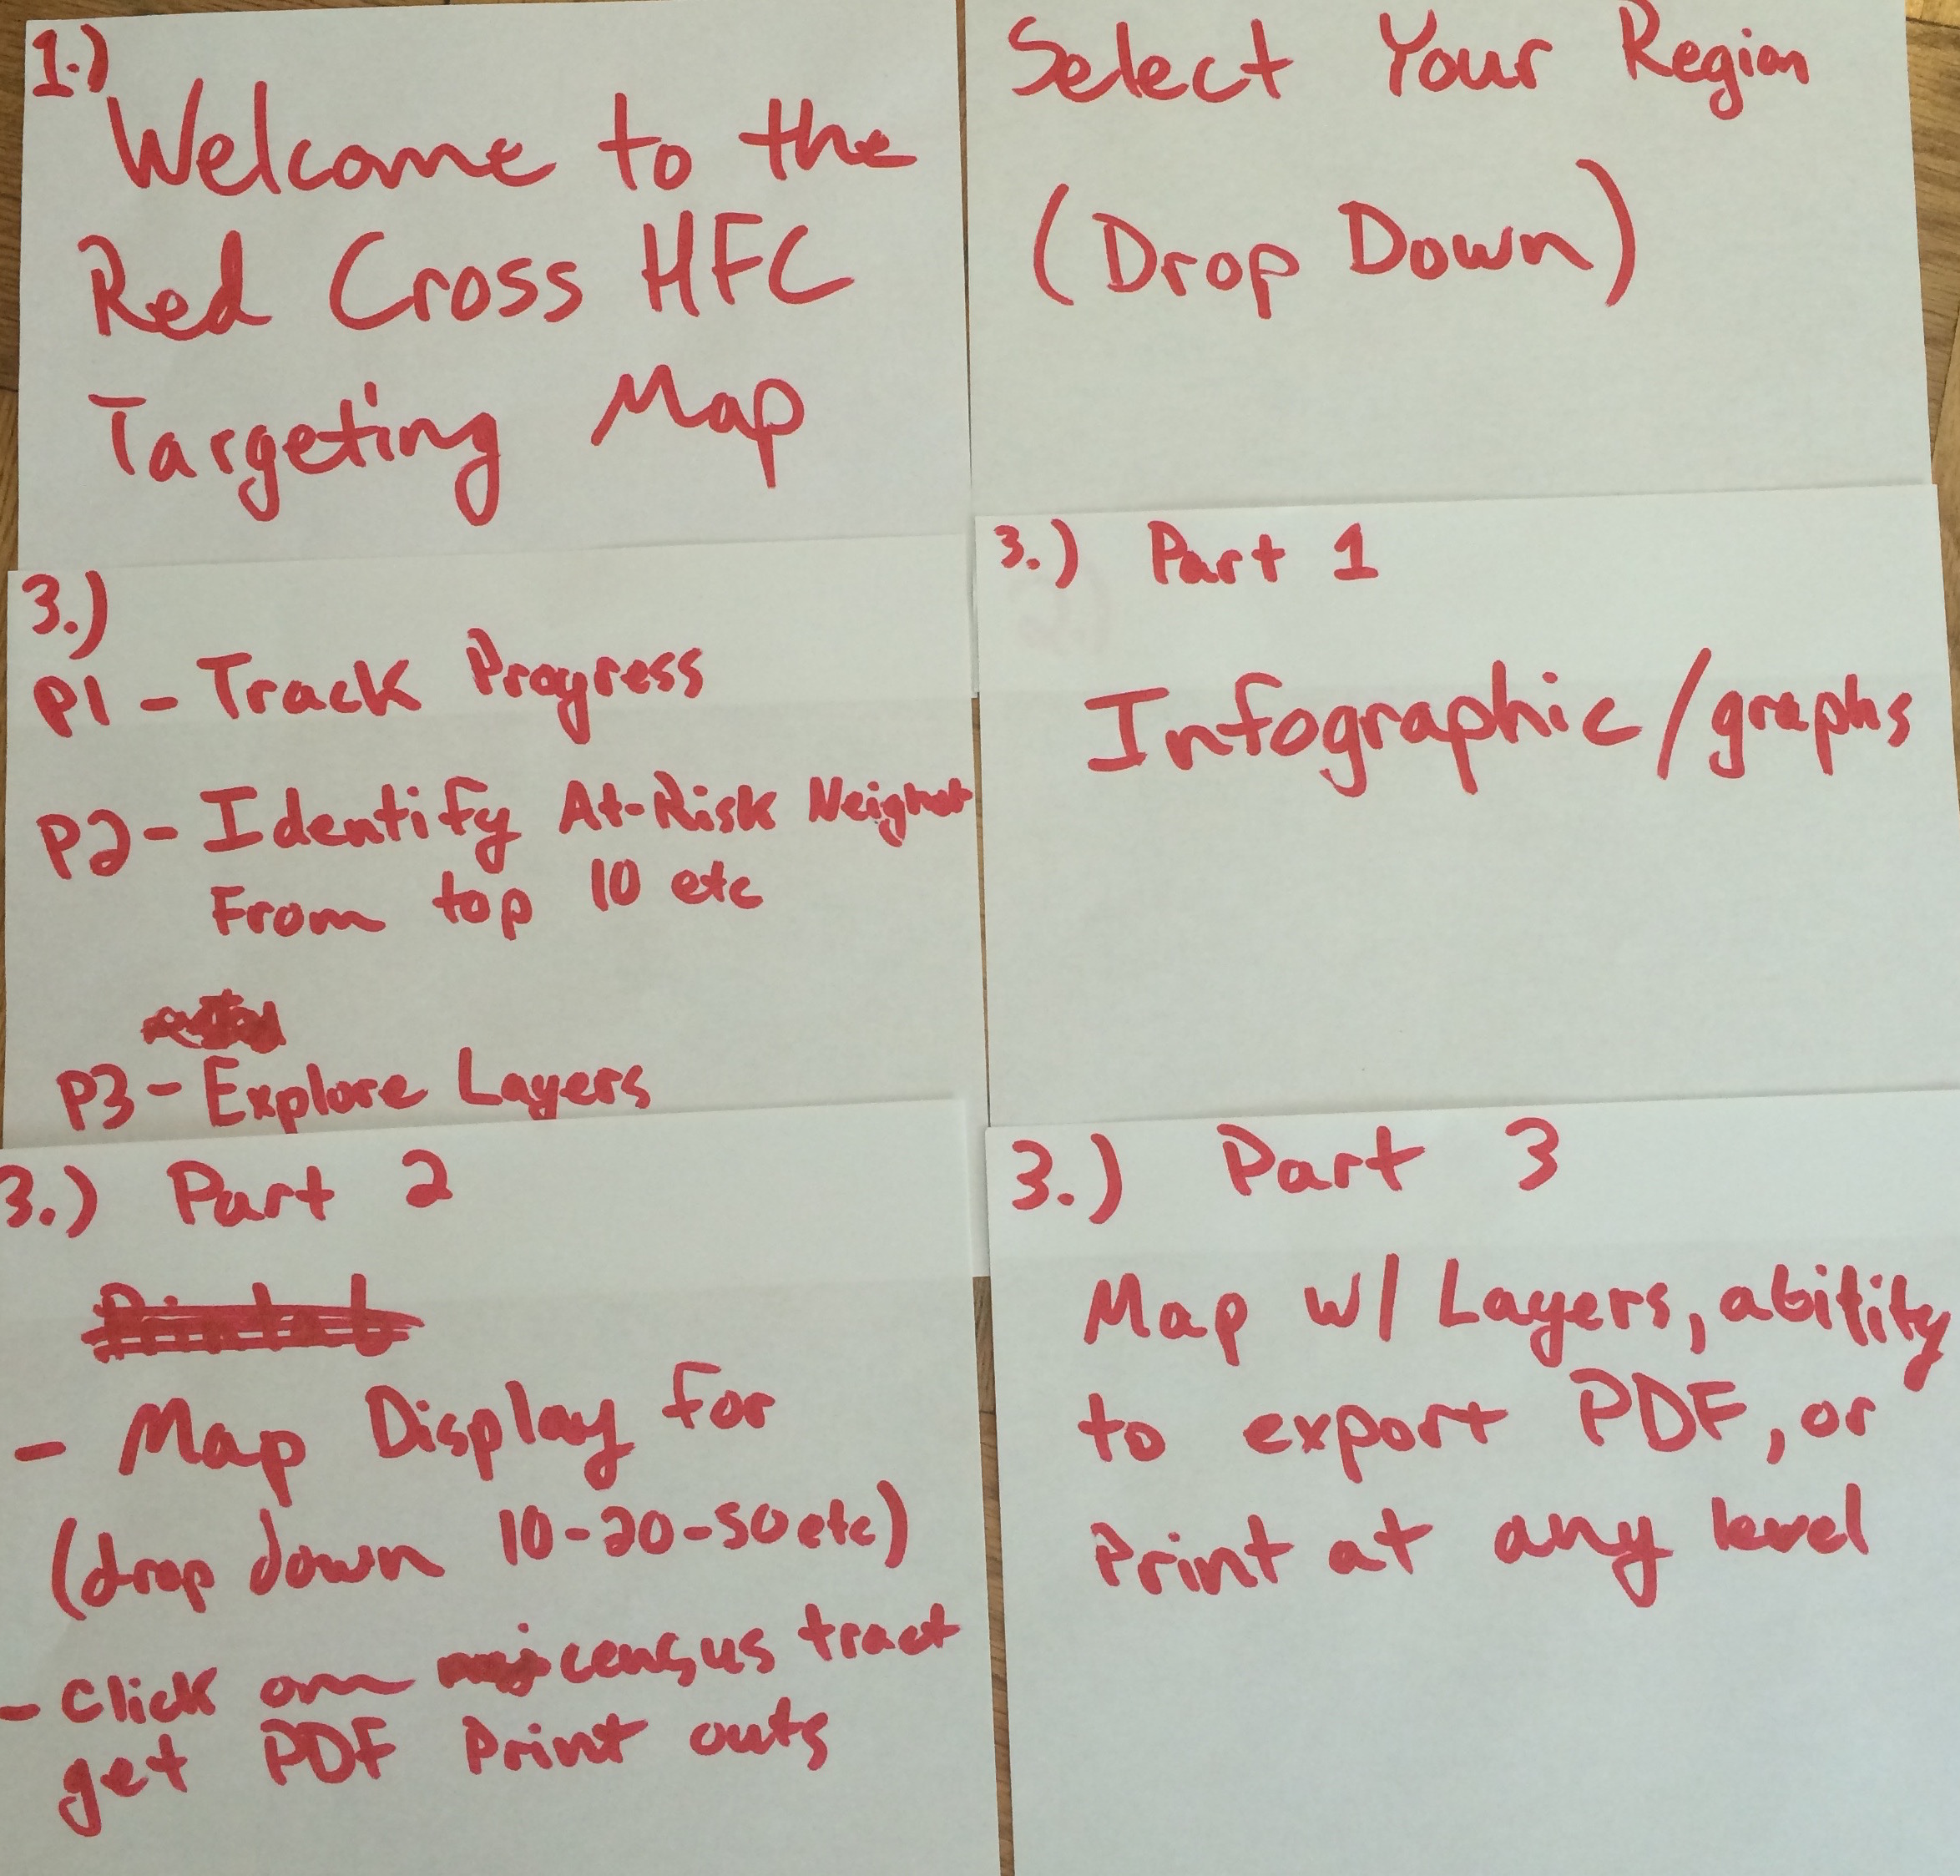 1.)
Welcome to the
Red Cross HFC
Targeting Map
Select Your Region
(Drop Down)
3.)
P1 - Track Progress
P2 - Identify At-Risk
From top 10 etc
P3 - Explore Layers
3.) Part 1
Infographic/graphs
3.) Part 2
- Map Display for
(drop down 10-20-50 etc)
- Click on census tract
get PDF Print outs
3.) Part 3
Map w/ Layers, ability
to export PDF, or
Print at any level